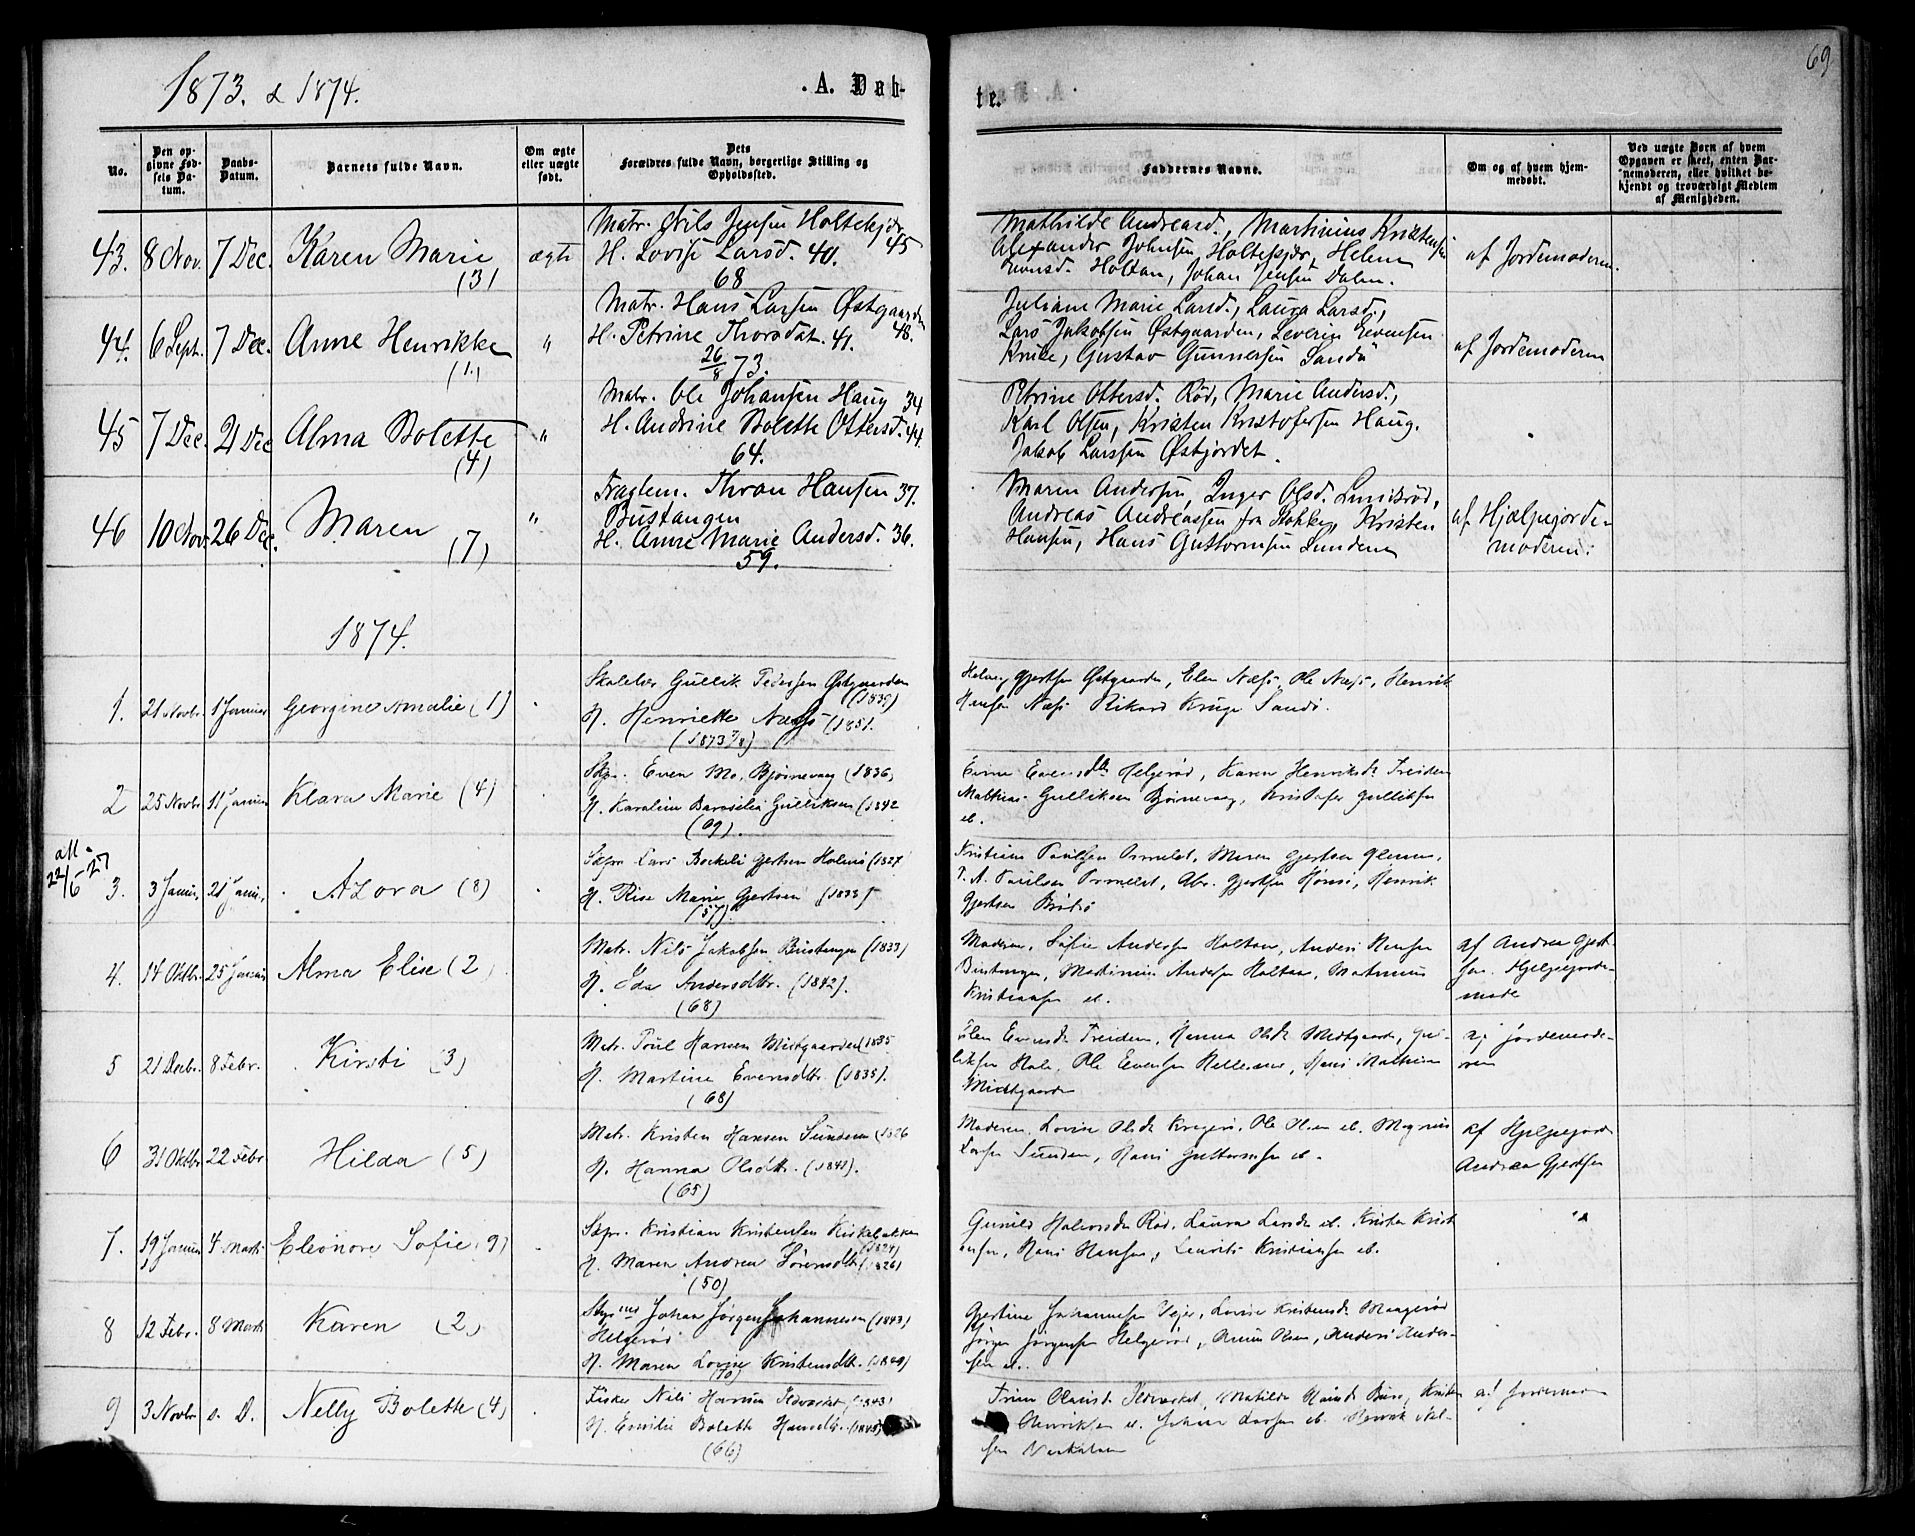 1873. & 1874.
A. Døb-
te.
69
No.
Den op-
givne Fød-
sels Da-
tum.
Daabs-
Datum.
Barnets fulde Navn.
Om ægte
eller uægte
født.
Dets
Forældres fulde Navn, borgerlige Stilling og
Opholdssted.
Faddernes Navne.
Om og af hvem hjem-
medøbt.
Ved uægte Børn af hvem
Opgaven er skeet, enten Bar-
nemoderen, eller hvilket be-
kjendt og troværdigt Medlem
af Menigheden.
43. 8 Nov. 7 Dec. Karen Marie (3) ægte
Matr. Nils Jensen Holtekjær 45
H. Lovise Larsd. 40.
68
Mathilde Andreasd., Martinius Kristensen
Alexander Johnsen Holtekjær, Helene
Evensd. Holtan, Johan Jensen Dalen.
af Jordemoderen.
44. 6 Sept. 7 Dec. Anne Henrikke (1.) "
Matr. Hans Larsen Østgaarden 48.
H. Petrine Thorsdat. 41.
26/8 73.
Juliane Marie Larsd., Laura Larsd.,
Lars Jakobsen Østgaarden, Severin Evensen
Knike, Gustav Gunnersen Sandø
af Jordemoderen
45 7 Dec. 21 Dec Alma Bolette (4) "
Matr. Ole Johansen Haug 34
H. Andrine Bolette Ottersd. 44.
64.
Petrine Ottersd. Rød, Marie Andersd.,
Karl Olsen, Kristen Kristofersen Haug.
Jakob Larssen Østjordet.
46 10 Nov. 26 Dec. Maren (7) "
Fragtem. Thron Hansen 37.
Bustangen
H. Anne Marie Andersd. 36.
59.
Maren Andersen, Inger Olsd. Lundsrød,
Andreas Andreassen fra Stokke, Kristen
Hansen, Hans Guttormsen Sundene
af Hjælpejorde-
moderen.
1874.
1. 21 Novbr. 1 Januar Georgine Amalie (1)
Skolelær Gullik Pedersen Østgaarden
(1839)
H. Henriette Næss (1851.
(1873 7/8)
Helene Gjertsen Østgaarden, Elen Næss, Ole Næss, Henrik
Hansen Næss Rikard Kruge Sandø.
2 25 Novbr 11 Januar Klara Marie (4)
Skpr. Even Mo, Bjørnevaag (1836)
H. Karoline Barosilia Gulliksen (1842
(69).
Evine Evensdtr Helgerød, Karen Henriksdt Treiden
Mathias Gulliksen Bjørnevaag, Kristofer Gulliksen
ib.
att.
22/5-27
3. 3 Januar, 21 Januar, Azora (8)
Skpr Lars Bockeli Gjertsen Holmø (1827
H. Rise Marie Gjertsen (1833)
(57).
Kristiane Paulsen Ormelet, Maren Gjertsen Glenne,
P. A. Paulsen Ormelet, Abr. Gjertsen Hønsø, Henrik
Gjertsen Brøtsø
4. 14 Oktbr. 25 Januar Alma Elise (2
Matr. Nils Jakobsen Bustangen (1833)
H. Eda Andersdtr. (1842).
(68)
Moderen, Sofie Andersen Holtan, Anders Hansen
Bustangen, Martinius Andersen Holtan, Matinius
Kristiansen ib.
af Andrea Gjert-
sen. Hjælpejorde-
mode
5 21 Decbr. 8 Febr. Kirsti (3)
Matr. Poul Hansen Midtgaarden (1835
H. Martine Evensdtr. (1835).
(68)
Elen Evensdt Treiden, Hanna Olsdt Midtgaarden, Gul-
liksen Hole, Ole Evensen Hellesmo, Hans Mathisen
Midtgaarden
af Jordemode-
ren
6 31 Oktbr 22 Febr Hilda (5)
Matr. Kristen Hansen Sundene (1826
H. Hanna Olsdtr. (1841).
(65)
Moderen, Lovise Olsdt Krogen, Ole Olsen ib. Magnus
Larsen Sundene, Hans Guttormsen ib.
af Hjelpejord
Andrea Gjertsen
7. 19 Januar 4 Marts Eleonore Sofie (9)
Skpr. Kristian Kristensen Kirkebakken
(1824)
H. Maren Andrea Sørensdtr (1826)
(50)
Gunild Halvorsdt Rød, Laura Larsdt ib. Kristen Krist
ensen, Hans Hansen, Laurits Kristiansen ib.
8 12 Febr. 8 Marts Karen (2)
Skprms Johan Jørgen Johannesen (1843)
Helgerød
H. Maren Lovise Kristensdtr. (1849)
(70)
Gjertine Johannesen Veje, Lovise Kristensdt Maagerød
Jørgen Jørgensen Helgerød, Anun Olsen, Anders Ander-
sen ib.
9 3 Novbr s. D. Nelly Bolette (4)
Fisker Nils Hansen Ildverket, (1843)
H. Emilie Bolette Hansdtr. (1845)
(66)
Trine Olausdt Ildverket, Matilde Hansdt Buss, Kristen
Henriksen ib. Johan Larsen ib. Henrik Nil-
sen Verkalsen
af Jordemod